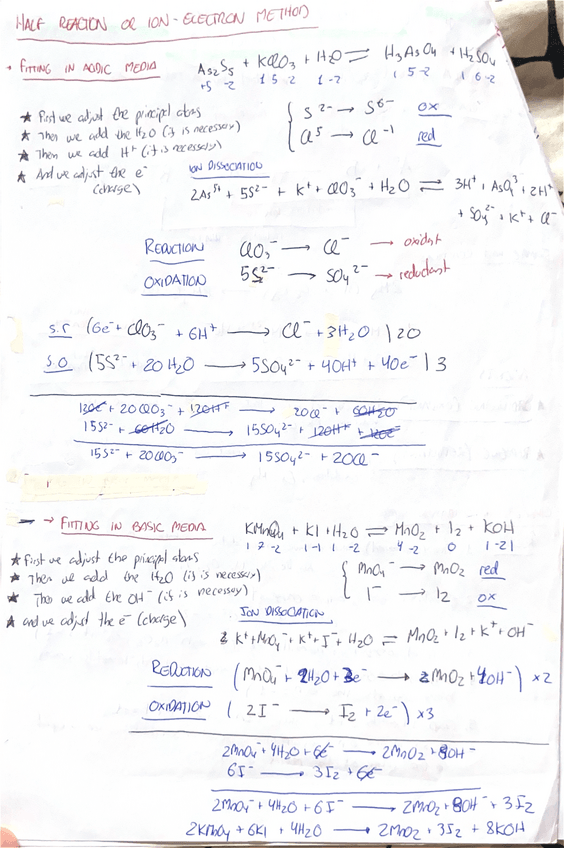 HALF REACTION OR ION-ELECTRON METHOD
→ FITTING IN ACIDIC MEDIA
As2S5 + KClO3 + H2O ⇌ H3AsO4 + H2SO4
+5 -2 1 5 -2 1 -2 1 5 -2 1 6 -2
★ First we adjust the principal atoms
★ Then we add the H2O (it is necessary)
★ Then we add H+ (it is necessary)
★ And we adjust the e- (charge)
S2- → S6- ox
Cl5 → Cl-1 red
ION DISSOCIATION
2As5+ + 5S2- + K+ + ClO3- + H2O ⇌ 3H+ + AsO43- + 2H+
+ SO42- + K+ + Cl-
REDUCTION ClO3- → Cl- → oxidant
OXIDATION 5S2- → SO42- → reductant
S.R (6e- + ClO3- + 6H+ → Cl- + 3H2O | 20
S.O (5S2- + 20H2O → 5SO42- + 40H+ + 40e- | 3
120e- + 20ClO3- + 120H+ → 20Cl- + 60H2O
15S2- + 60H2O → 15SO42- + 120H+ + 120e-
15S2- + 20ClO3- → 15SO42- + 20Cl-
→ FITTING IN BASIC MEDIA
KMnO4 + KI + H2O ⇌ MnO2 + I2 + KOH
1 7 -2 1 -1 1 -2 4 -2 0 1 -2 1
★ First we adjust the principal atoms
★ Then we add the H2O (it is necessary)
★ Then we add the OH- (it is necessary)
★ and we adjust the e- (charge)
MnO4- → MnO2 red
I- → I2 ox
ION DISSOCIATION
K+ + MnO4- + K+ + I- + H2O ⇌ MnO2 + I2 + K+ + OH-
REDUCTION (MnO4- + 2H2O + 3e- → MnO2 + 4OH-) x2
OXIDATION (2I- → I2 + 2e-) x3
2MnO4- + 4H2O + 6e- → 2MnO2 + 8OH-
6I- → 3I2 + 6e-
2MnO4- + 4H2O + 6I- → 2MnO2 + 8OH- + 3I2
2KMnO4 + 6KI + 4H2O → 2MnO2 + 3I2 + 8KOH